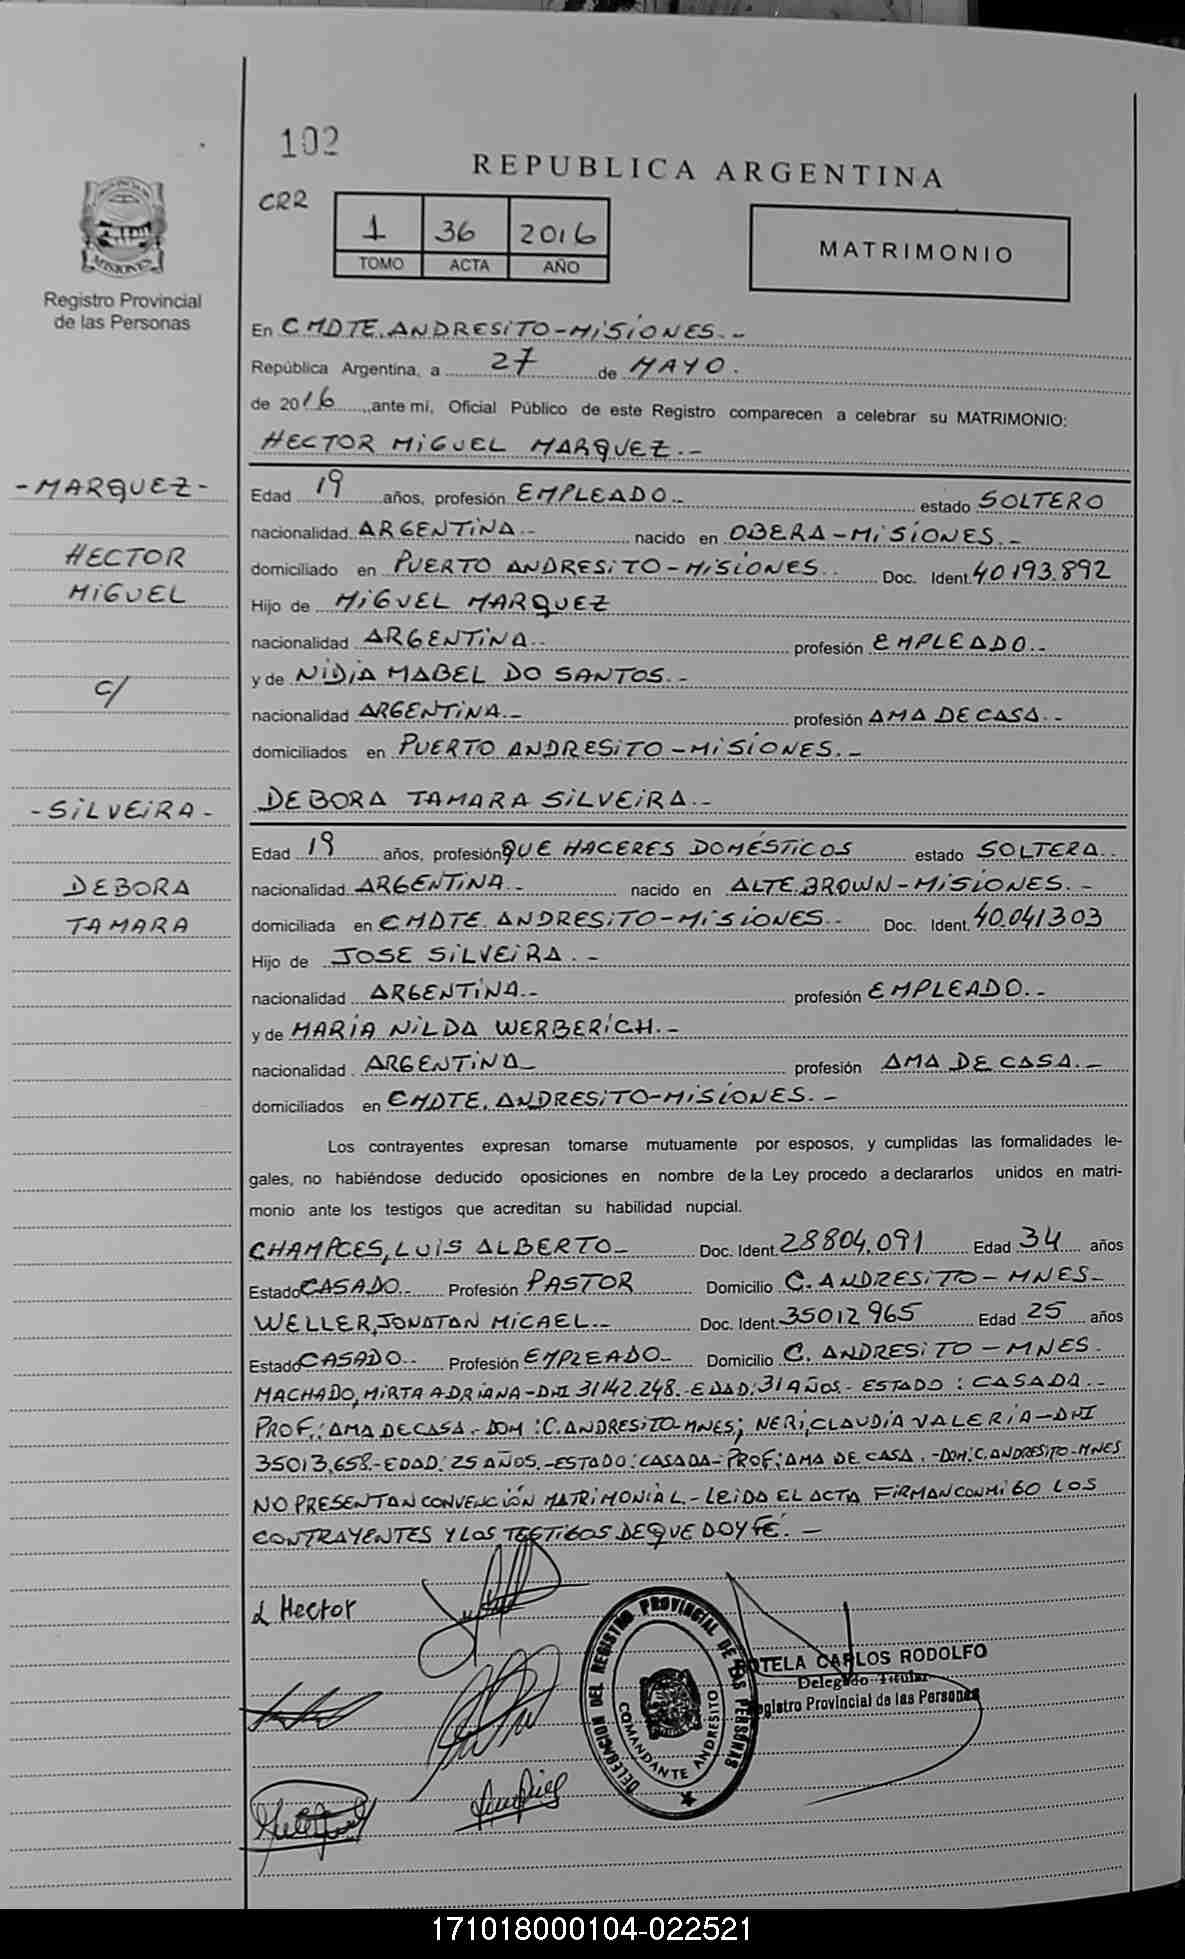 102
REPUBLICA ARGENTINA
CRR
1 36 2016
TOMO ACTA AÑO
MATRIMONIO
MISIONES
Registro Provincial
de las Personas
En CMDTE. ANDRESITO-MISIONES.-
República Argentina, a 27 de MAYO.
de 2016, ante mí, Oficial Público de este Registro comparecen a celebrar su MATRIMONIO:
HECTOR MIGUEL MARQUEZ.-
-MARQUEZ-
HECTOR
MIGUEL
c/
-SILVEIRA-
DEBORA
TAMARA
Edad 19 años, profesión EMPLEADO.- estado SOLTERO
nacionalidad ARGENTINA.- nacido en OBERA-MISIONES.-
domiciliado en PUERTO ANDRESITO-MISIONES.- Doc. Ident. 40193.892
Hijo de MIGUEL MARQUEZ
nacionalidad ARGENTINA.- profesión EMPLEADO.-
y de NIDIA MABEL DO SANTOS.-
nacionalidad ARGENTINA.- profesión AMA DE CASA.-
domiciliados en PUERTO ANDRESITO-MISIONES.-
DEBORA TAMARA SILVEIRA.-
Edad 19 años, profesión QUE HACERES DOMÉSTICOS estado SOLTERA.-
nacionalidad ARGENTINA.- nacido en ALTE.BROWN-MISIONES.-
domiciliada en CMDTE. ANDRESITO-MISIONES.- Doc. Ident. 40.041303
Hijo de JOSE SILVEIRA.-
nacionalidad ARGENTINA.- profesión EMPLEADO.-
y de MARIA NILDA WERBERICH.-
nacionalidad ARGENTINA- profesión AMA DE CASA.-
domiciliados en CMDTE. ANDRESITO-MISIONES.-
Los contrayentes expresan tomarse mutuamente por esposos, y cumplidas las formalidades le-
gales, no habiéndose deducido oposiciones en nombre de la Ley procedo a declararlos unidos en matri-
monio ante los testigos que acreditan su habilidad nupcial.
LUIS ALBERTO- Doc. Ident. 28804.091 Edad 34 años
Estado CASADO.- Profesión PASTOR Domicilio C. ANDRESITO-MNES-
WELLER, JONATAN MICAEL.- Doc. Ident. 35012965 Edad 25 años
Estado CASADO.- Profesión EMPLEADO- Domicilio C. ANDRESITO-MNES.
MACHADO, MIRTA ADRIANA-DNI 31142.248.-EDAD:31 AÑOS.- ESTADO: CASADA.-
PROF.: AMA DE CASA.-DOM: C.ANDRESITO-MNES; NERI, CLAUDIA VALERIA-DNI
35013.658.-EDAD: 25 AÑOS.-ESTADO: CASADA-PROF: AMA DE CASA.-DOM: C.ANDRESITO-MNES
NO PRESENTAN CONVENCIÓN MATRIMONIAL.- LEIDA EL ACTA FIRMAN CONMIGO LOS
CONTRAYENTES Y LOS TESTIGOS DE QUE DOY FÉ.-
Hector
DELEGACION DEL REGISTRO PROVINCIAL DE LAS PERSONAS
COMANDANTE ANDRESITO
OTELA CARLOS RODOLFO
Delegado Titular
Registro Provincial de las Personas
171018000104-022521